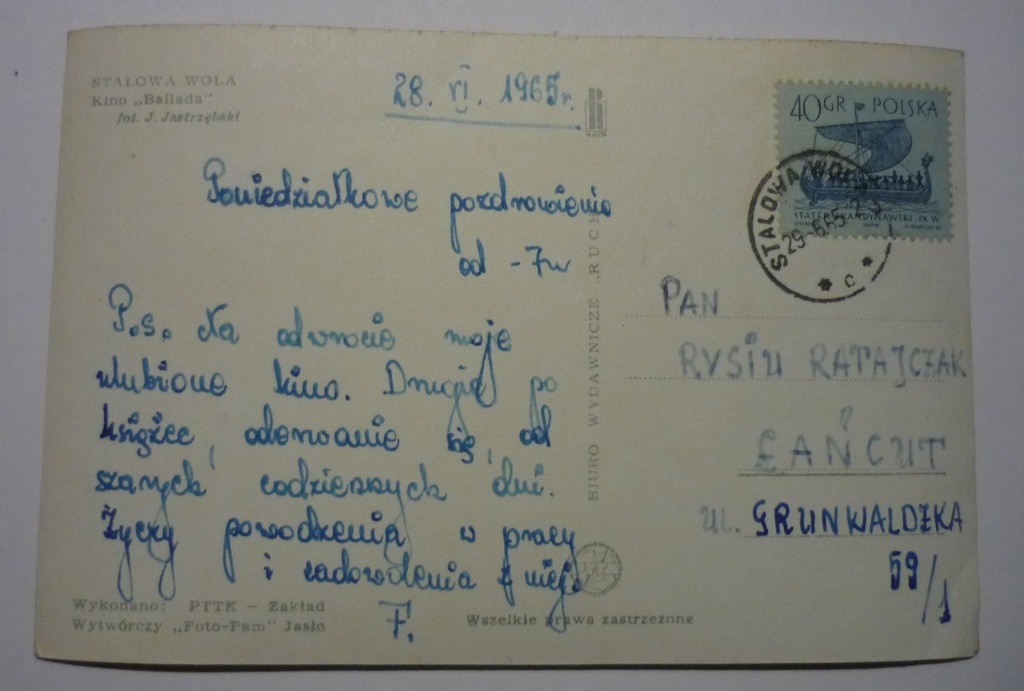 STALOWA WOLA
Kino „Ballada"
fot. J. Jastrzębski
28. VI. 1965r.
RUCH
40GR POLSKA
STATEK SKANDYNAWSKI IX W.
STALOWA WOLA
29-6.65
* c *
Poniedziałkowe pozdrowienia
od
P.s. Na odwrocie moje
ulubione kino. Drugie po
książce, oderwanie się, od
szarych codziennych dni.
Życzy powodzenia w pracy
i zadowolenia z niej.
F.
BIURO WYDAWNICZE „RUCH"
PAN
RYSIU RATAJCZAK
ŁAŃCUT
UL. GRUNWALDZKA
59/1
Wykonano: PTTK – Zakład
Wytwórczy „Foto-Pam" Jasło
Wszelkie prawa zastrzeżone